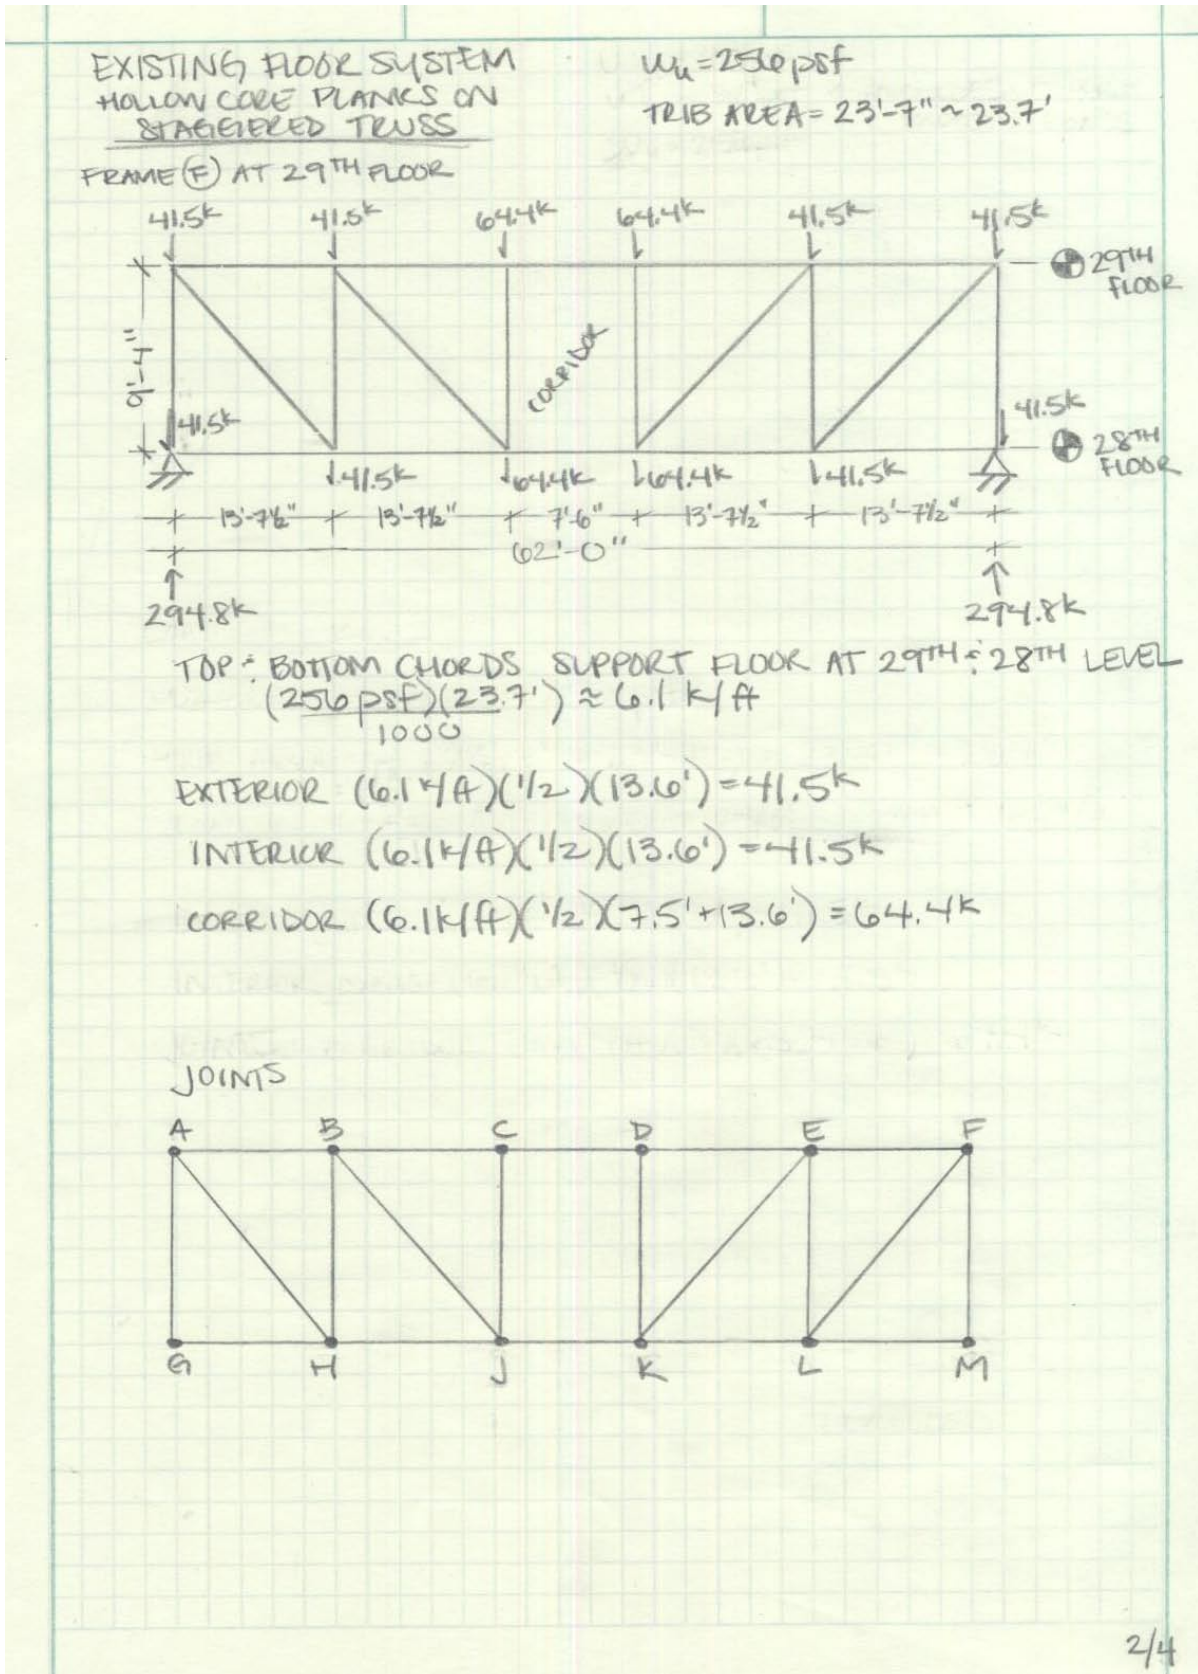 EXISTING FLOOR SYSTEM
HOLLOW CORE PLANKS ON
STAGGERED TRUSS
Wu = 256 psf
TRIB AREA = 23'-7" ~ 23.7'
FRAME (F) AT 29TH FLOOR
41.5k 41.5k 64.4k 64.4k 41.5k 41.5k
29TH
FLOOR
9'-4"
CORRIDOR
41.5k
41.5k
28TH
FLOOR
41.5k 64.4k 64.4k 41.5k
13'-7½" 13'-7½" 7'-6" 13'-7½" 13'-7½"
62'-0"
294.8k 294.8k
TOP & BOTTOM CHORDS SUPPORT FLOOR AT 29TH & 28TH LEVEL
(256 psf)(23.7') ≈ 6.1 k/ft
1000
EXTERIOR (6.1 k/ft)(1/2)(13.6') = 41.5k
INTERIOR (6.1k/ft)(1/2)(13.6') = 41.5k
CORRIDOR (6.1k/ft)(1/2)(7.5'+13.6') = 64.4k
JOINTS
A B C D E F
G H J K L M
2/4